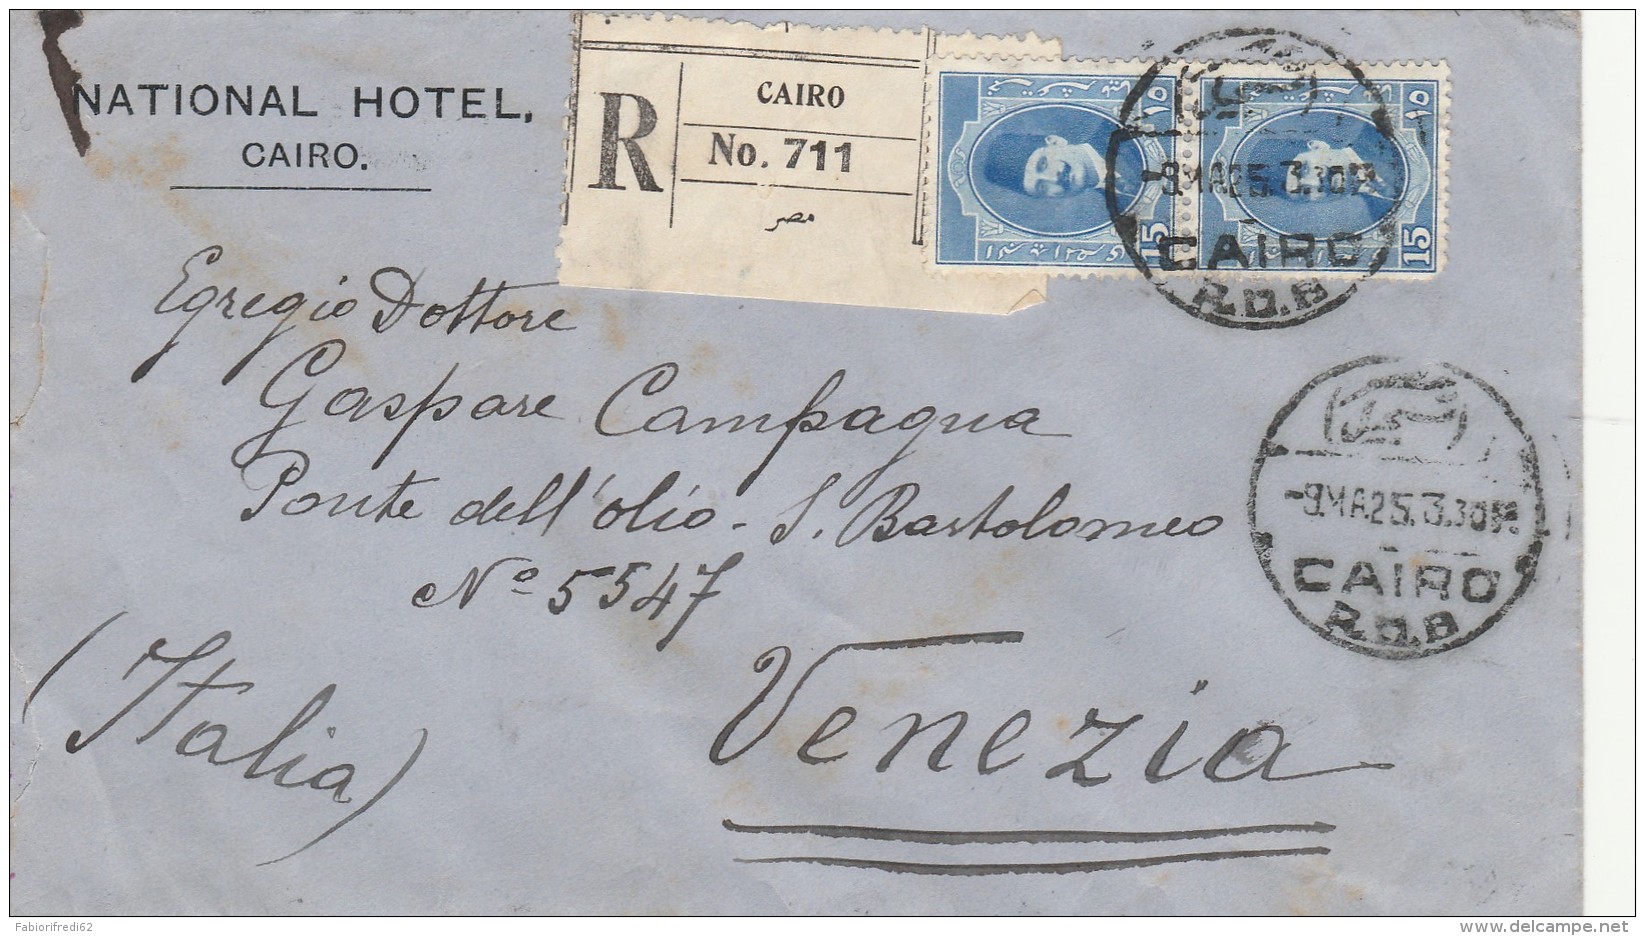 NATIONAL HOTEL,
CAIRO.
R
CAIRO
No. 711
مصر
١٥
15
١٥
15
-9.MA25.3.30P
CAIRO
R.D.B
Egregio Dottore
Gaspare Campagna
Ponte dell'olio - S. Bartolomeo
Nº 5547
Venezia
(Italia)
-9.MA25.3.30P
CAIRO
R.D.B
Fabiorifredi62
www.delcampe.net